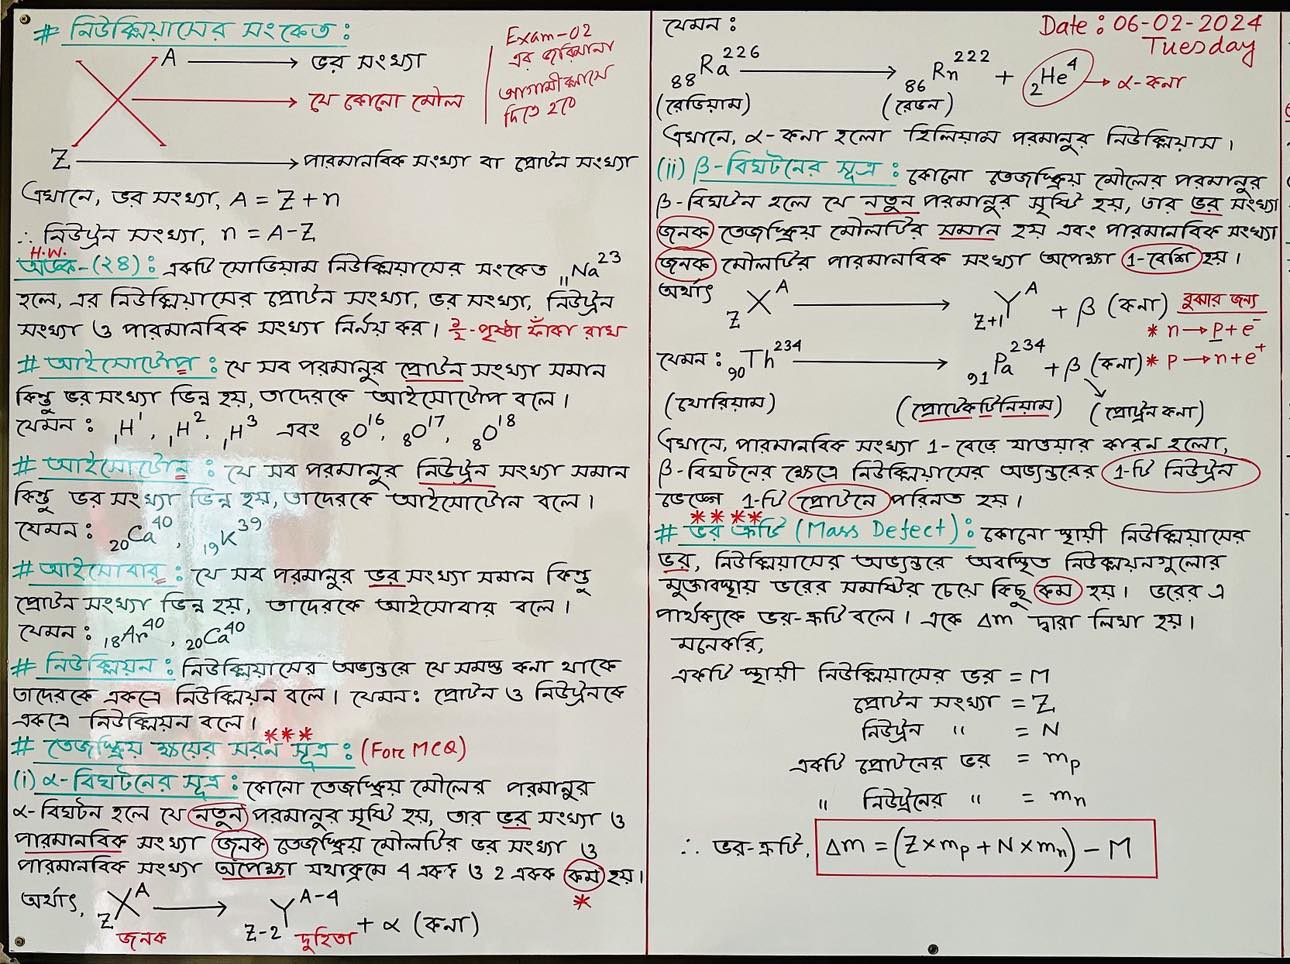 # নিউক্লিয়াসের সংকেত :
A → ভর সংখ্যা
X → যে কোনো মৌল
Z → পারমানবিক সংখ্যা বা প্রোটন সংখ্যা
Exam-02
এর জরিমানা
আগামী ক্লাসে
দিতে হবে
এখানে, ভর সংখ্যা, A = Z + n
∴ নিউট্রন সংখ্যা, n = A-Z
H.W.
অংক-(২৪) : একটি সোডিয়াম নিউক্লিয়াসের সংকেত ₁₁Na²³
হলে, এর নিউক্লিয়াসের প্রোটন সংখ্যা, ভর সংখ্যা, নিউট্রন
সংখ্যা ও পারমানবিক সংখ্যা নির্নয় কর। ১/২-পৃষ্ঠা ফাঁকা রাখ
# আইসোটোপ : যে সব পরমানুর প্রোটন সংখ্যা সমান
কিন্তু ভর সংখ্যা ভিন্ন হয়, তাদেরকে আইসোটোপ বলে।
যেমন : ₁H¹, ₁H², ₁H³ এবং ₈O¹⁶, ₈O¹⁷, ₈O¹⁸
# আইসোটোন : যে সব পরমানুর নিউট্রন সংখ্যা সমান
কিন্তু ভর সংখ্যা ভিন্ন হয়, তাদেরকে আইসোটোন বলে।
যেমন : ₂₀Ca⁴⁰, ₁₉K³⁹
# আইসোবার : যে সব পরমানুর ভর সংখ্যা সমান কিন্তু
প্রোটন সংখ্যা ভিন্ন হয়, তাদেরকে আইসোবার বলে।
যেমন : ₁₈Ar⁴⁰, ₂₀Ca⁴⁰
# নিউক্লিয়ন : নিউক্লিয়াসের অভ্যন্তরে যে সমস্ত কনা থাকে
তাদেরকে একত্রে নিউক্লিয়ন বলে। যেমন : প্রোটন ও নিউট্রনকে
একত্রে নিউক্লিয়ন বলে।
***
# তেজষ্ক্রিয় ক্ষয়ের সরন সূত্র : (For MCQ)
(i) α-বিঘটনের সূত্র : কোনো তেজষ্ক্রিয় মৌলের পরমানুর
α-বিঘটন হলে যে নতুন পরমানুর সৃষ্টি হয়, তার ভর সংখ্যা ও
পারমানবিক সংখ্যা জনক তেজষ্ক্রিয় মৌলটির ভর সংখ্যা ও
পারমানবিক সংখ্যা অপেক্ষা যথাক্রমে 4 একক ও 2 একক কম হয়।
*
অর্থাৎ, zXᴬ → z-2Yᴬ⁻⁴ + α (কনা)
জনক দুহিতা
যেমন :
Date : 06-02-2024
Tuesday
₈₈Ra²²⁶ → ₈₆Rn²²² + ₂He⁴ → α-কনা
(রেডিয়াম) (রেডন)
এখানে, α-কনা হলো হিলিয়াম পরমানুর নিউক্লিয়াস।
(ii) β-বিঘটনের সূত্র : কোনো তেজষ্ক্রিয় মৌলের পরমানুর
β-বিঘটন হলে যে নতুন পরমানুর সৃষ্টি হয়, তার ভর সংখ্যা
জনক তেজষ্ক্রিয় মৌলটির সমান হয় এবং পারমানবিক সংখ্যা
জনক মৌলটির পারমানবিক সংখ্যা অপেক্ষা 1-বেশি হয়।
অর্থাৎ zXᴬ → z+1Yᴬ + β (কনা) বুঝার জন্য
* n → p + e⁻
যেমন : ₉₀Th²³⁴ → ₉₁Pa²³⁴ + β (কনা) * p → n + e⁺
(থোরিয়াম) (প্রোটেকটিনিয়াম) (প্রোট্রন কনা)
এখানে, পারমানবিক সংখ্যা 1-বেড়ে যাওয়ার কারন হলো,
β-বিঘটনের ক্ষেত্রে নিউক্লিয়াসের অভ্যন্তরের 1-টি নিউট্রন
ভেঙ্গে 1-টি প্রোটনে পরিনত হয়।
****
# ভর ত্রুটি (Mass Defect) : কোনো স্থায়ী নিউক্লিয়াসের
ভর, নিউক্লিয়াসের অভ্যন্তরে অবস্থিত নিউক্লিয়নগুলোর
মুক্তাবস্থায় ভরের সমষ্টির চেয়ে কিছু কম হয়। ভরের এ
পার্থক্যকে ভর-ত্রুটি বলে। একে Δm দ্বারা লিখা হয়।
মনেকরি,
একটি স্থায়ী নিউক্লিয়াসের ভর = M
প্রোটন সংখ্যা = Z
নিউট্রন " = N
একটি প্রোটনের ভর = mₚ
" নিউট্রনের " = mₙ
∴ ভর-ত্রুটি, Δm = (Z×mₚ + N×mₙ) - M